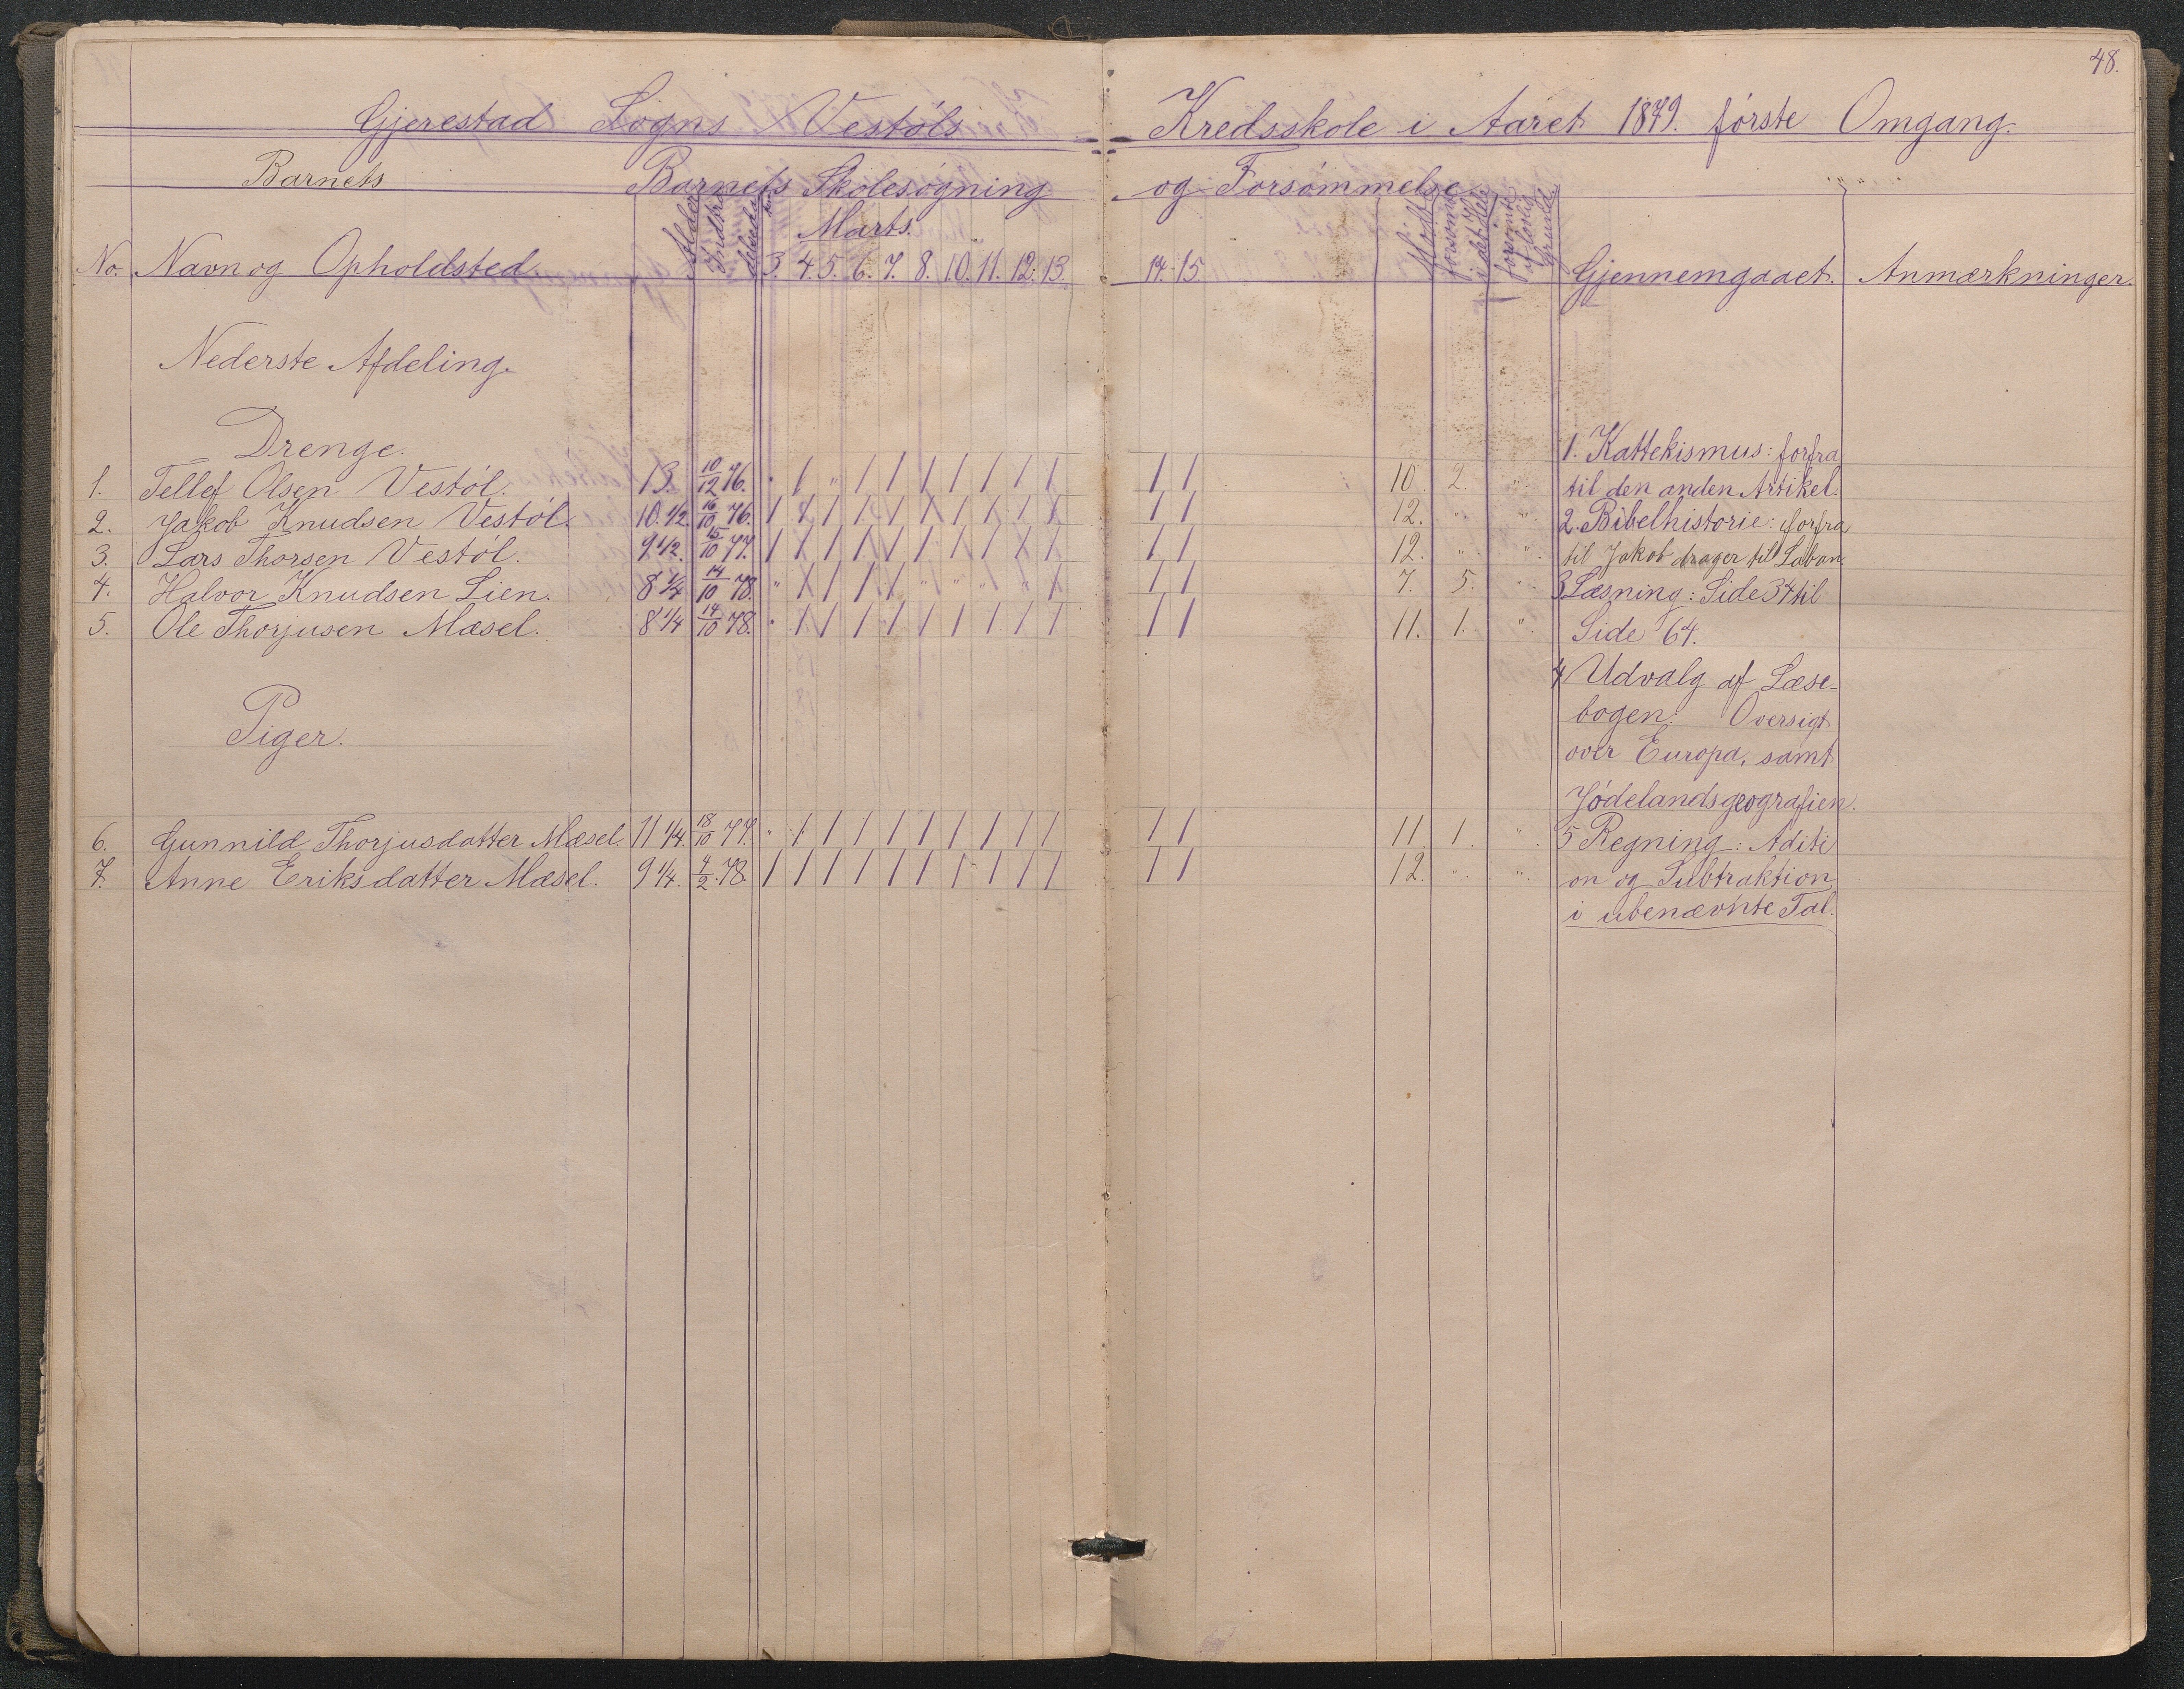 48.
Gjerestad Sogns Vestöls Kredsskole i Aaret 1879. förste Omgang.
Barnets Barnets Skolesögning og Forsömmelse.
Marts.
No. Navn og Opholdsted. Alder 3. 4. 5. 6. 7. 8. 10. 11. 12. 13. 14. 15. Mödt forsömt i det Hele forsömt uf lovlig Grund Gjennemgaaet. Anmærkninger.
Nederste Afdeling.
Drenge.
1. Tellef Olsen Vestöl. 13. 10/12 76. " / " / / / / / / / / / 10. 2. "
2. Jakob Knudsen Vestöl. 10. 1/2. 16/10 76. / / / / / / / / / / / / 12. " "
3. Lars Thorsen Vestöl. 9 1/2. 15/10 77. / / / / / / / / / / / / 12. " "
4. Halvor Knudsen Lien. 8 1/4 14/10 78. " / / / / " " " " / / / 7. 5. "
5. Ole Thorjusen Mæsel. 8 1/4 14/10 78. " / / / / / / / / / / / 11. 1. "
Piger.
6. Gunnild Thorjusdatter Mæsel. 11 1/4. 18/10 77. " / / / / / / / / / / / 11. 1. "
7. Anne Eriksdatter Mæsel. 9 1/4. 4/2. 78. / / / / / / / / / / / / 12. " "
1. Kattekismus: forfra
til den anden Artikel.
2. Bibelhistorie: forfra
til Jakob drager til Laban.
3 Læsning: Side 34 til
Side 64.
4 Udvalg af Læse-
bogen: Oversigt
over Europa, samt
Jödelandsgeografien.
5 Regning: Aditi
on og Subtraktion
i ubenævnte Tal.